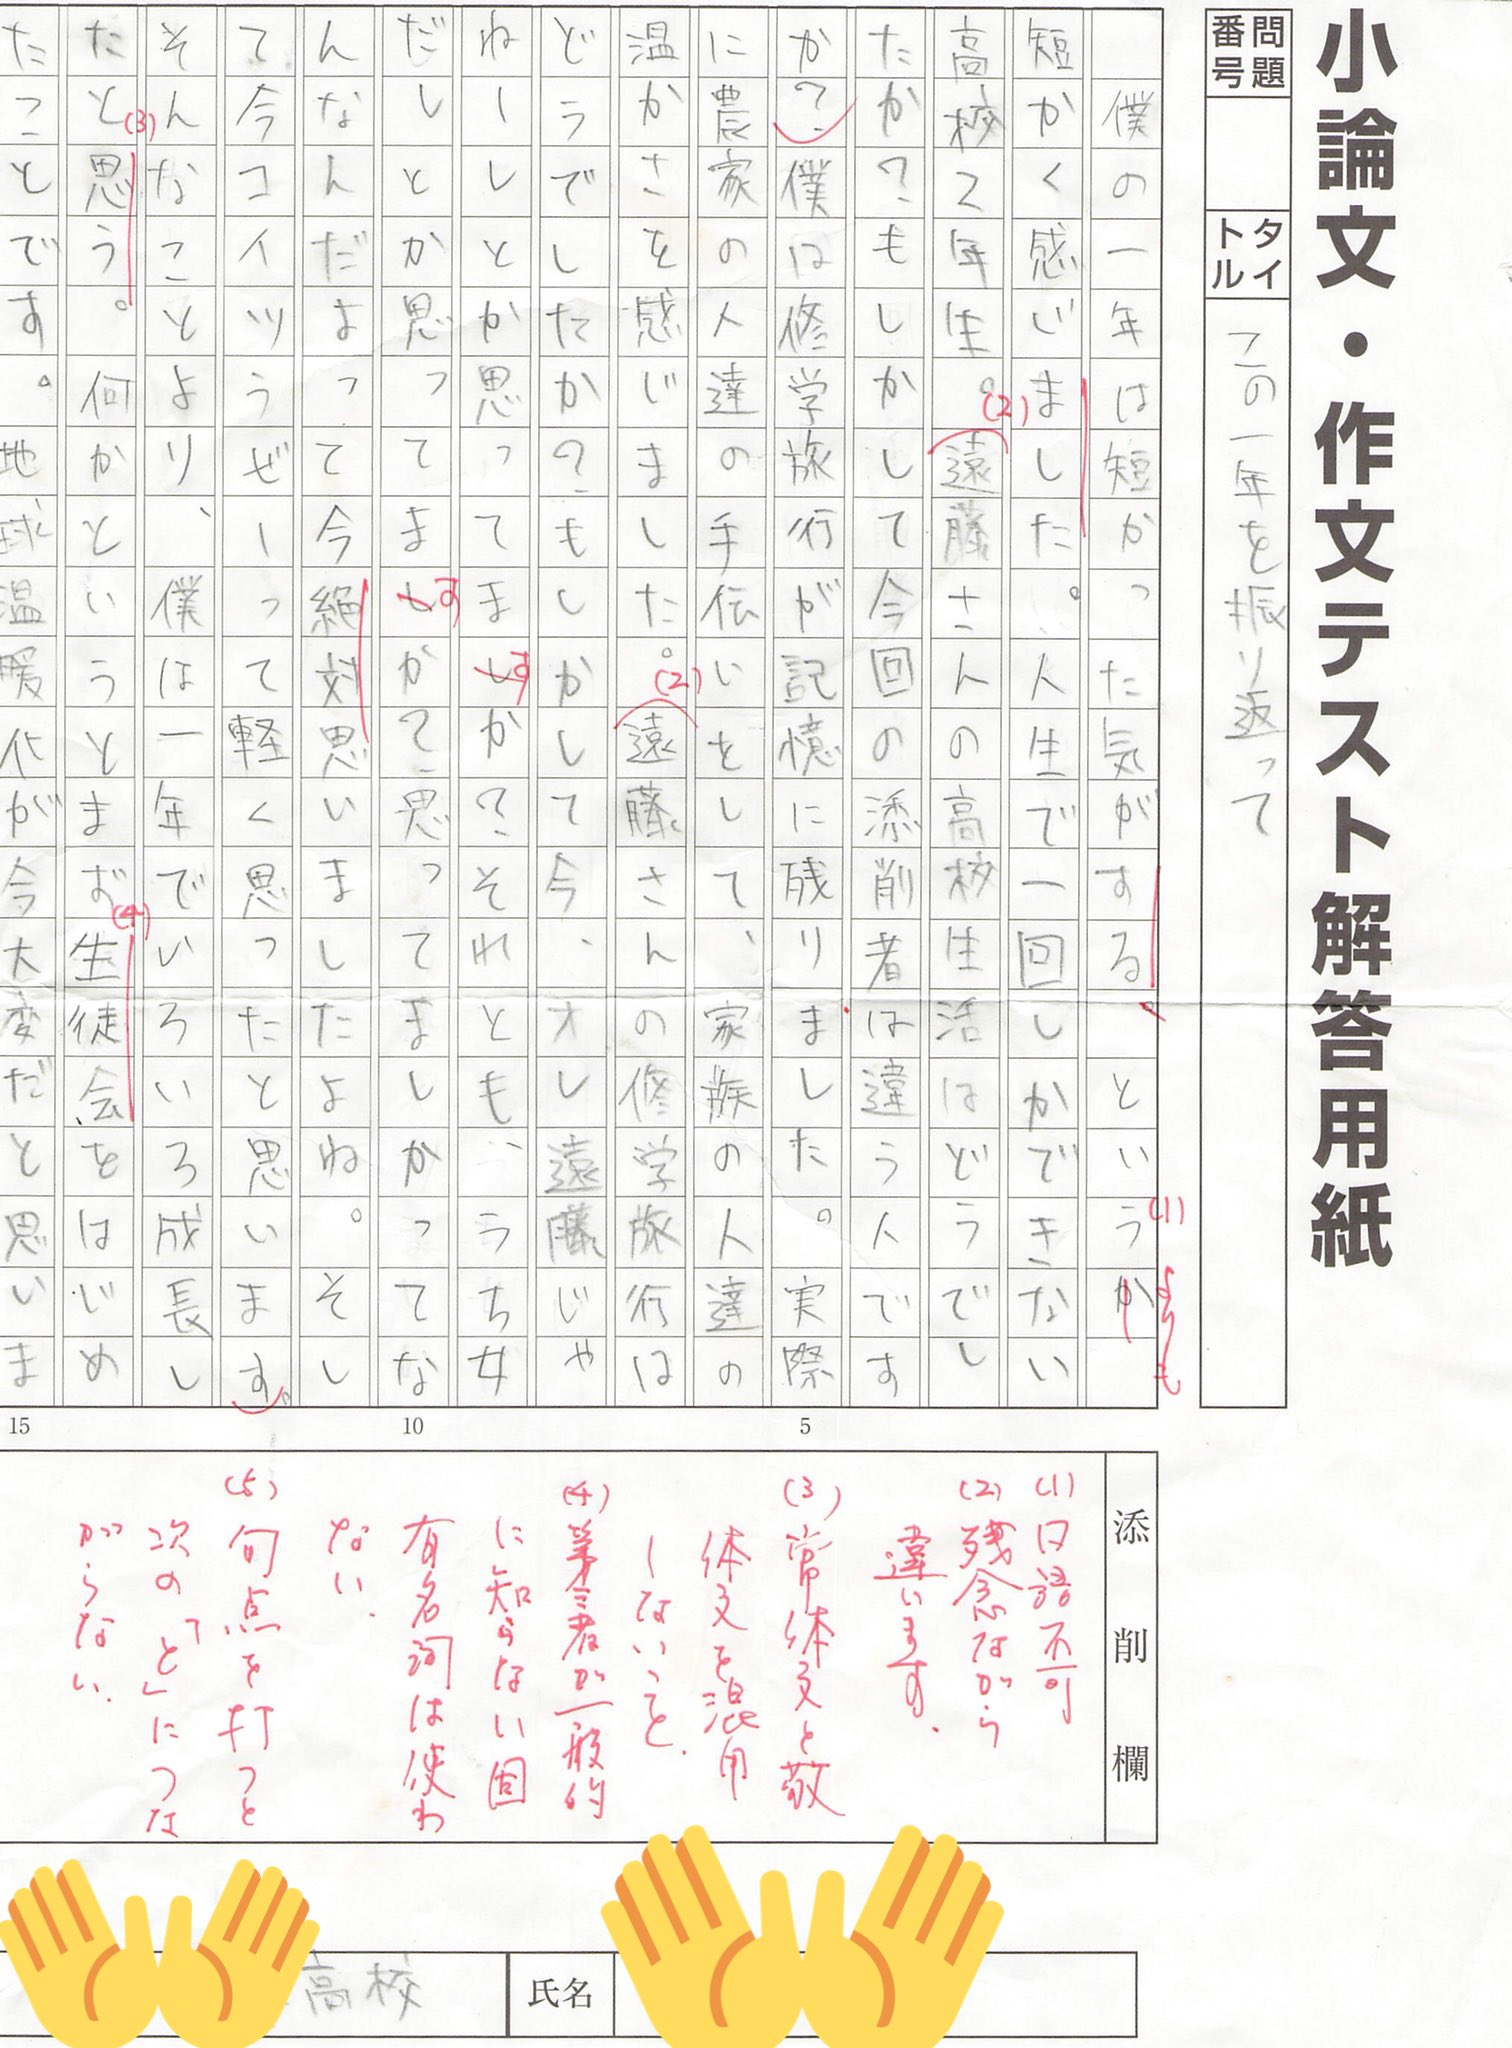 小論文・作文テスト解答用紙
問題番号
タイトル
この一年を振り返って
僕の一年は短かった気がする。というか
(1)
よりも
短かく感じました。人生で一回しかできない
高校2年生。遠藤さんの高校生活はどうでし
(2)
たか？もしかして今回の添削者は違う人です
か？僕は修学旅行が記憶に残りました。実際
に農家の人達の手伝いをして、家族の人達の
温かさを感じました。遠藤さんの修学旅行は
(2)
どうでしたか？もしかして今、オレ遠藤じゃ
ねーしとか思ってましか？それとも、うち女
す
だしとか思ってましか？思ってましかってな
す
んなんだよって今絶対思いましたよね。そし
て今コイツうぜーって軽く思ったと思います。
そんなことより、僕は一年でいろいろ成長し
たと思う。何かというとまず生徒会をはじめ
(3)
(4)
たことです。地球温暖化が今大変だと思いま
5
10
15
添削欄
(1)口語不可
(2)残念ながら
違います.
(3)常体文と敬
体文を混用
しないこと.
(4)第三者が一般的
に知らない固
有名詞は使わ
ない.
(5)句点を打つと
次の「と」につな
がらない.
高校
氏名